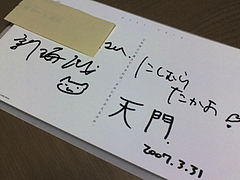 新海
にしむら
たかお
天門
2007.3.31